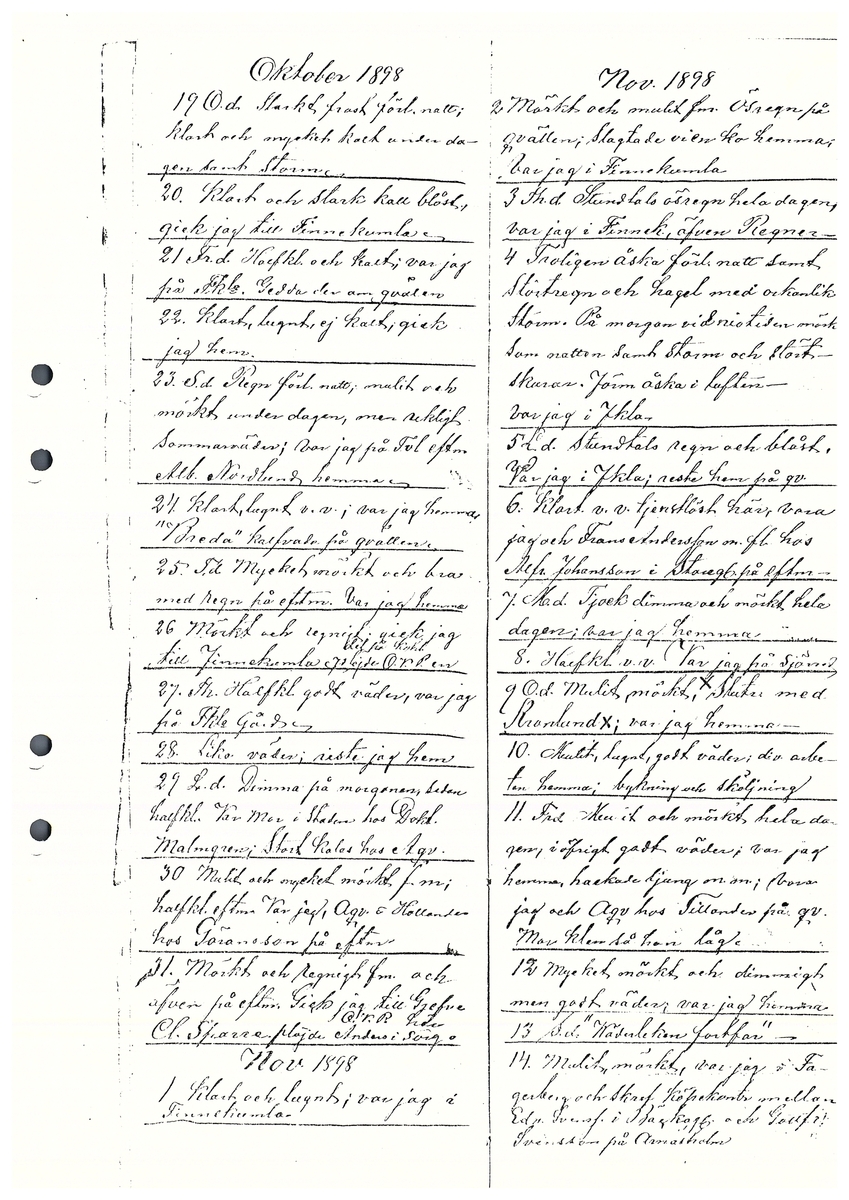 Oktober 1898
19 O.d. Starkt frost förl. natt;
klart och mycket kalt under da-
gen samt Storm
20. Klart och stark kall blåst,
gick jag till Finnekumla
21 Fr.d Halfkl. och kalt; var jag
på Fkla. Gedda der om qvälen
22. Klart, lugnt, ej kalt, gick
jag hem.
23. S.d Regn förl. natt; mulit och
mörkt under dagen, men riktigt
sommarväder; var jag på Tvl eftm
Alb. Nordlund hemma
24 Klart, lugnt v. v.; var jag hemma,
"Breda" kalfvade på qvällen.
25. T.d Mycket mörkt och bra
med regn på eftm. Var jag hemma
26 Mörkt och regnigt; gick jag
till Finnekumla plöjde O.K.P. en
27. Th. Halfkl godt väder, var jag
på Fkla Gårds
28. Lika väder; reste jag hem
29 L.d. Dimma på morgonen, sedan
halfkl. Var Mor i Staden hos Dokt.
Malmgren; Stort kalas hos Agv.
30 Mulit och mycket mörkt f.m;
halfkl. eftm Var jag, Agv. & Hollander
hos Göransson på eftm
31. Mörkt och regnigt fm. och
äfven på eftm. Gick jag till Gjefve
O.K.P. här
Cl. Sparre plöjde Anders i Sörg.
Nov 1898
1 Klart och lugnt; var jag i
Finnekumla
Nov. 1898
2 Mörkt och mulit fm. Ösregn på
qvällen; Slagtade vi en ko hemma;
Var jag i Finnekumla
3 Th.d Stundtals ösregn hela dagen,
var jag i Finnek, äfven Regner
4 Troligen åska förl. natt samt
Störtregn och hagel med orkanlik
Storm. På morgon vid niotiden mörk
som natten samt Storm och stört-
skurar. Jöm åska i luften
var jag i Fkla
5 L.d. Stundtals regn och blåst.
Var jag i Fkla; reste hem på qv.
6. Klart v. v. tjenstlöst här, vara
jag och Frans Andersson m. fl. hos
Alfr. Johansson i Storegl. på eftm
7. M.d. Tjock dimma och mörkt hela
dagen; var jag hemma
8. Halfkl v.v. Var jag på Sjöred
9 O.d. Mulit, mörkt, Slutu med
Kronlund X; var jag hemma
10. Mulit, lugnt, godt väder; div arbe-
ten hemma; bykning och sköljning
11. Frd Mulit och mörkt hela da-
gen, i öfrigt godt väder; var jag
hemma, hackade ljung m. m; vora
jag och Agv hos Tillander på qv.
Mor klen så hon låg
12 Mycket mörkt och dimmigt
men godt väder; var jag hemma
13 S.d. "Väderleken fortfar"
14. Mulit, mörkt, var jag i Fa-
gerberg och skref köpekontr mellan
Edv. Svens. i Bäckagg. och Gottfr.
Svensson på Arnäsholm